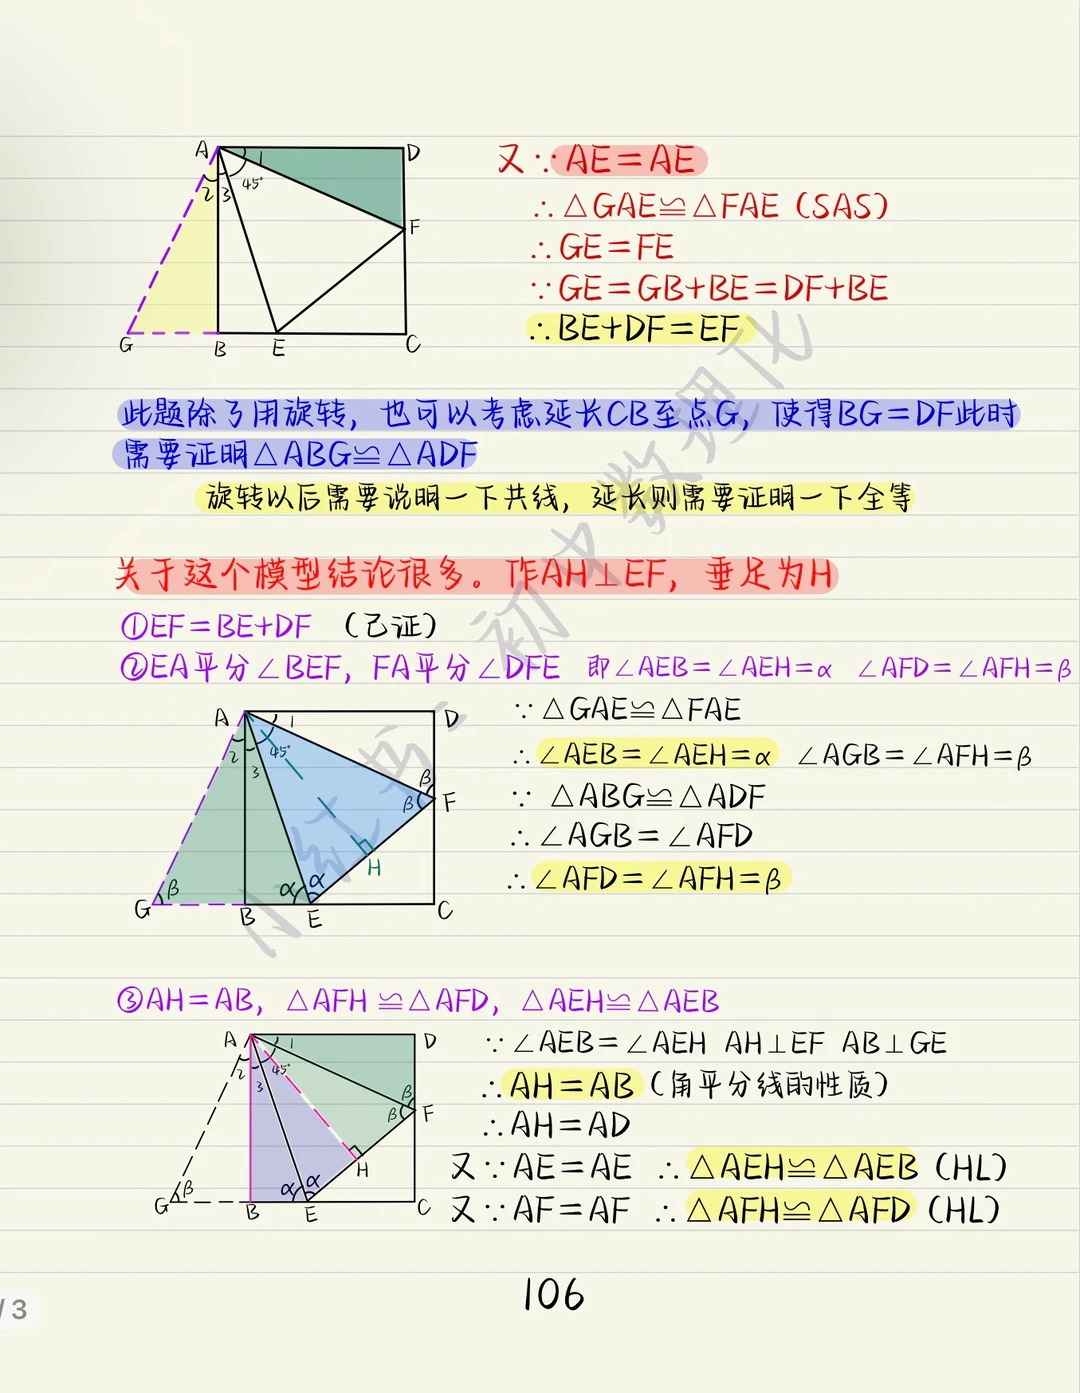 又∵AE=AE
∴△GAE≌△FAE（SAS）
∴GE=FE
∵GE=GB+BE=DF+BE
∴BE+DF=EF
A D F G B E C 1 2 3 45°
此题除了用旋转，也可以考虑延长CB至点G，使得BG=DF此时
需要证明△ABG≌△ADF
旋转以后需要说明一下共线，延长则需要证明一下全等
关于这个模型结论很多。作AH⊥EF，垂足为H
①EF=BE+DF （已证）
②EA平分∠BEF，FA平分∠DFE 即∠AEB=∠AEH=α ∠AFD=∠AFH=β
A D F G B E C H 1 2 3 45° α α β β β
∵△GAE≌△FAE
∴∠AEB=∠AEH=α ∠AGB=∠AFH=β
∵ △ABG≌△ADF
∴∠AGB=∠AFD
∴∠AFD=∠AFH=β
③AH=AB，△AFH≌△AFD，△AEH≌△AEB
A D F G B E C H 1 2 3 45° α α β β β
∵∠AEB=∠AEH AH⊥EF AB⊥GE
∴AH=AB（角平分线的性质）
∴AH=AD
又∵AE=AE ∴△AEH≌△AEB（HL）
又∵AF=AF ∴△AFH≌△AFD（HL）
106
/3
小红书：初中数理化